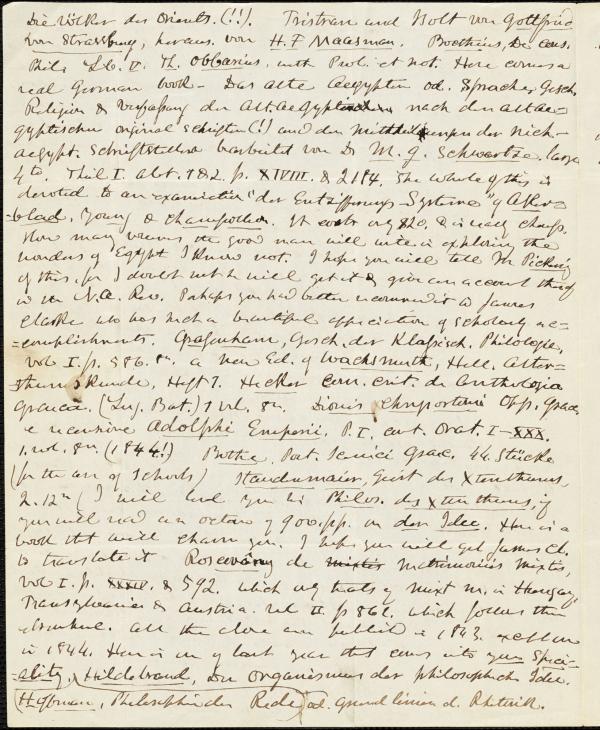 Die Völker des Orients. (!!). Tristran und Isolt von Gottfried
von Strassburg, heraus. von H. F. Maasman. Boethius, De cons.
Phil. Lb. V. Th. Obbarius, with Prol. et not. Here comes a
real German book – Das alte Aegypten od. Sprache, Gesch.
Religion & Verfassung der Alt-Aegypten nach den altae-
gyptischen original Schriften (!) und den Mittheilungen der nich-
aegypt. Schriftsteller bearbeitet von Dr M. G. Schwartze. large
4to. Theil I. abt. 1 & 2. p. & 2184. The whole of this is
devoted to an examination "der Entzifferungs-Systeme" of Aker-
-blad, Young & Champollion. It costs only $20. & is really cheap.
How many volumes the good man will write in exploring the
wonders of Egypt I know not. I hope you will tell Mr Pickering
of this, for I doubt not he will get it & give an account thereof
in the N. A. Rev. Perhaps you had better recommend it to James
Clarke who has such a beautiful appreciation of scholarly ac-
=complishments. Grafenham, Gesch. der Klassisch. Philologie,
vol I. p. 586. 8vo. a new Ed. of Wachsmuth, Hell. Alter-
-thumskunde, Heft 7. Hecker com. crit. de Anthologia
Graeca. (Lug. Bat.) 1 vol. 8vo. Dionis Chrysostomi Opp. Graec.
e recensione Adolphi Emperii. P. I. cont. Orat. I–XXX.
1. vol. 8vo. (1844!) Bothe, Poet. Scenici Graec. 44. Stücke
(for the use of Schools) Staudenmaier, Geist des Xtenthums,
2. 12mo (I will lend you his Philos. des Xtenthums, if
you will read an octavo of 900. pp. on der Idee. Here is a
book that will charm you. I hope you will get James Cl.
to translate it Roscovány de matrimoniis mixtis,
vol I. p. & 592. which only treats of mixt m. in Hungary,
Transylvania & Austria. vol II. p 866. which follows the
. All the above were published in 1843. except one
in 1844. Here is one of last year that comes into your Speci-
-ality, Hildebrand, der Organismus der philosophisch Idee.
(Hoffman, Philosophie der Rede) od. Grundlinien d. Rhetorik.